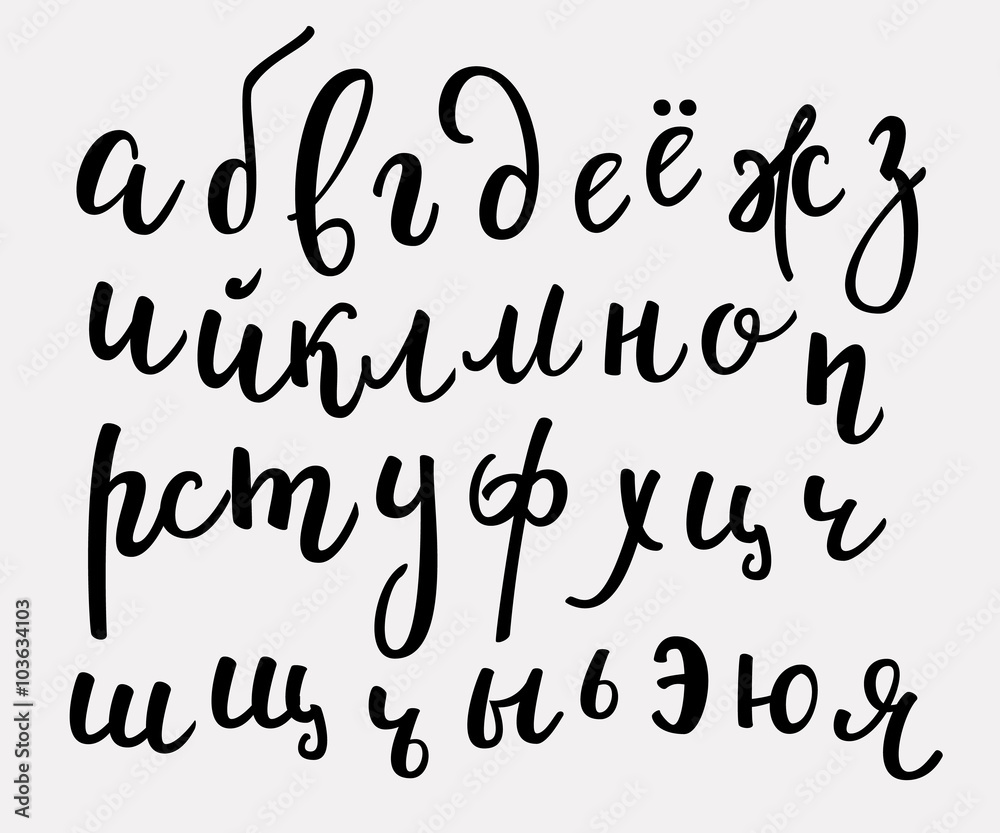 а б в г д е ё ж з
и й к л м н о п
р с т у ф х ц ч
ш щ ъ ы ь э ю я
Adobe Stock | #103634103